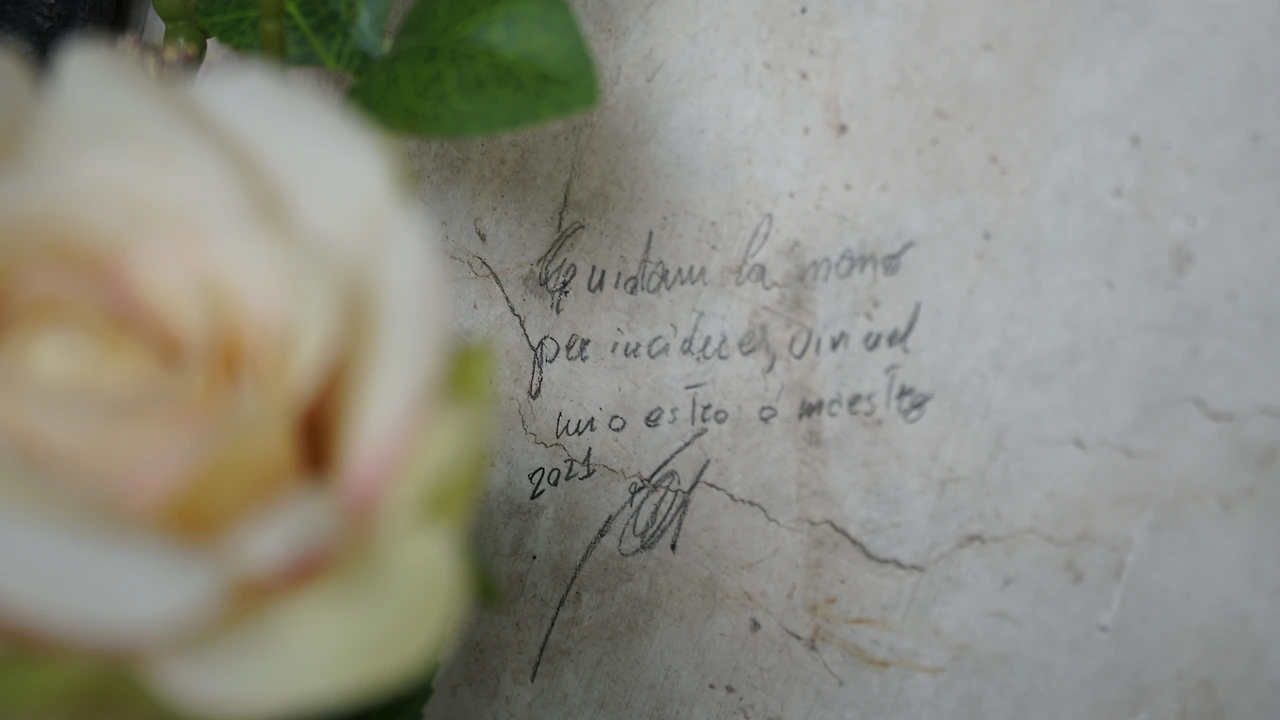 Guidami la mano
per incidere, divin el
mio estro o maestro
2021